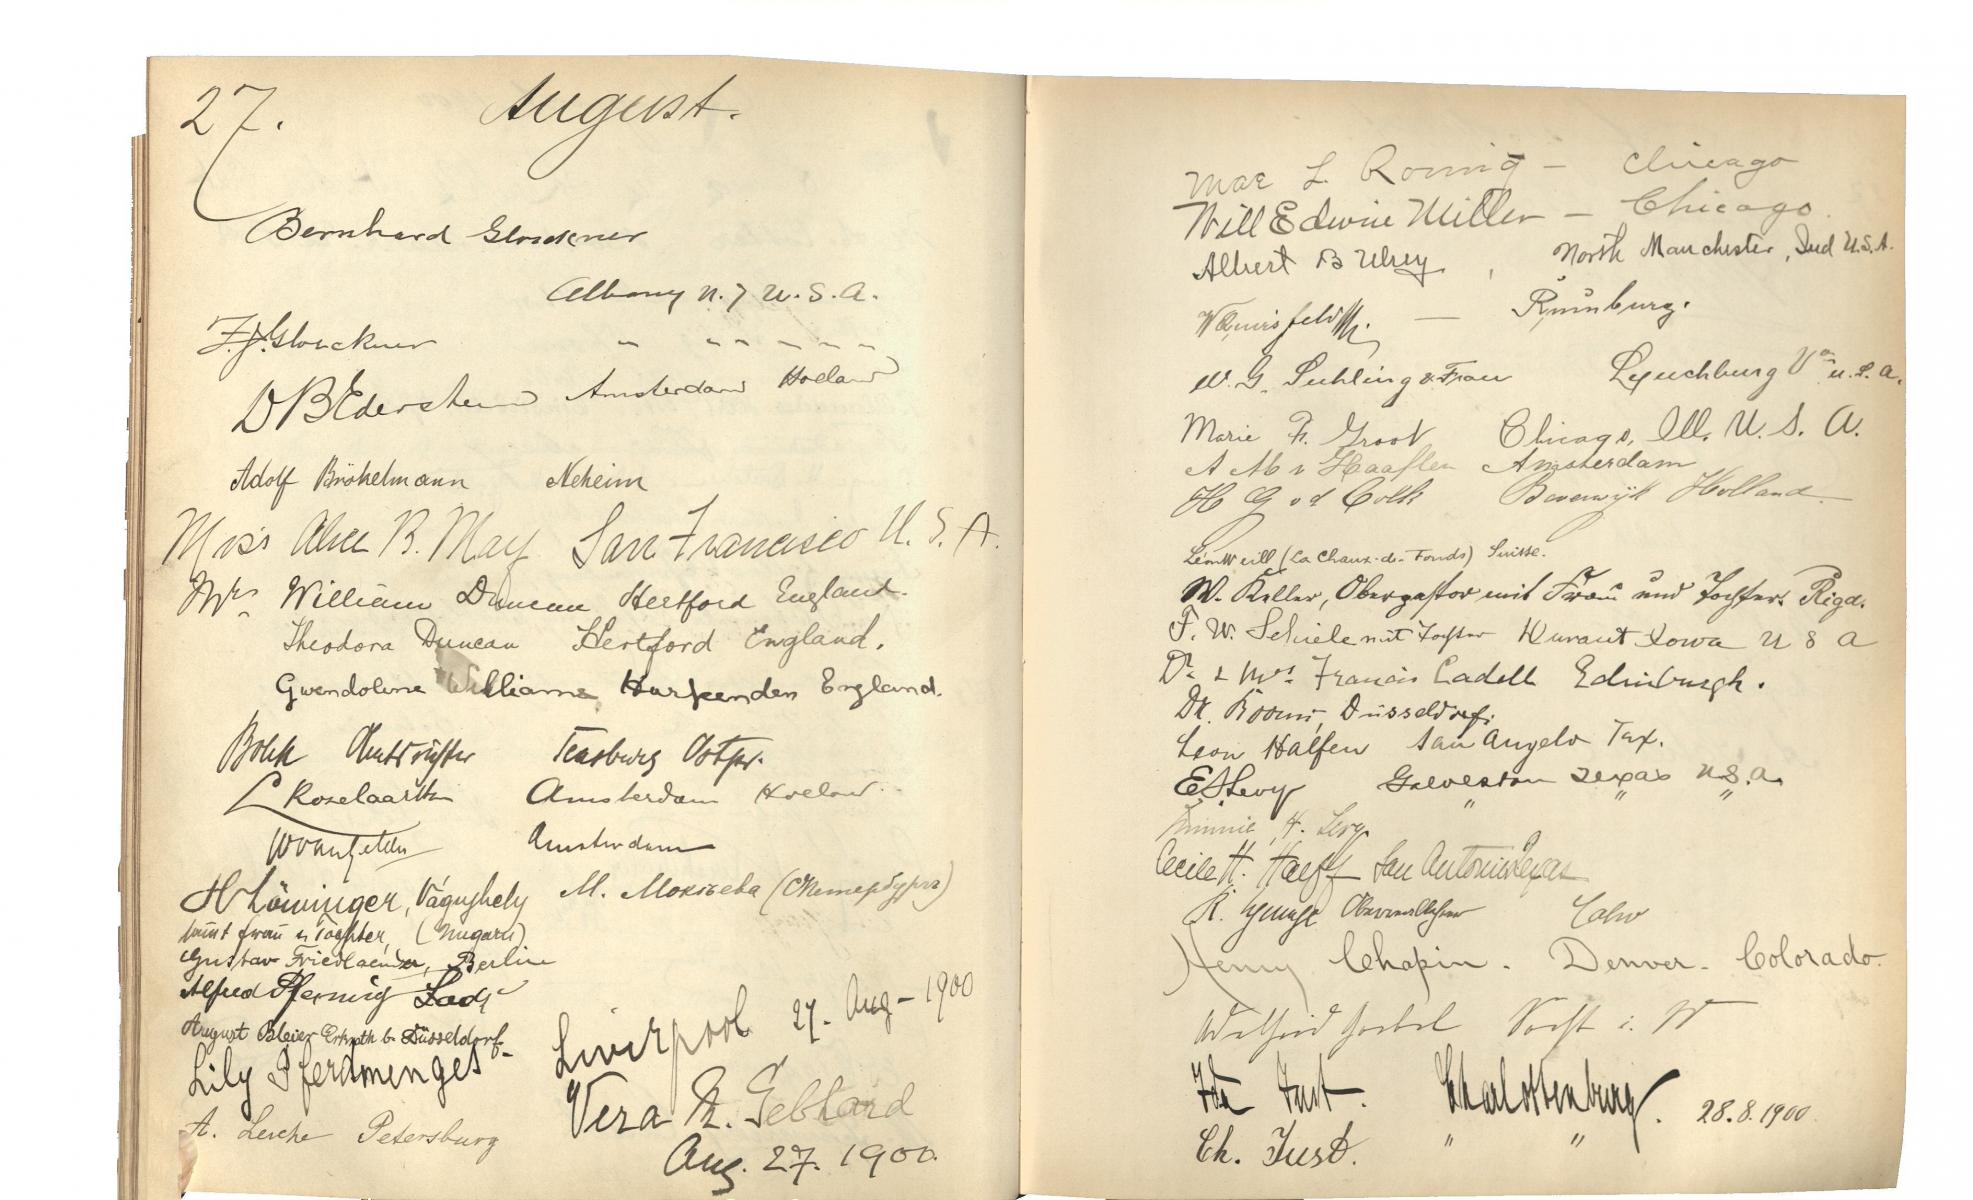 27. August.
Bernhard Glockner
Albany N.Y U.S.A.
F.J. Glockner " " " " " "
D B Edersheim Amsterdam Holland
Adolf Brökelmann Neheim
Miss Alice B. May San Francisco U.S.A.
Mrs William Duncan Hertford England.
Theodora Duncan Hertford England.
Gwendolene Williams Harpenden England.
Amtsrichter Ostpr.
L Roselaar Amsterdam Holland
W van Gelder Amsterdam
H Löwinger, Vágujhely
samt Frau u Tochter, (Ungarn)
М. Мокиева (СПетербургъ)
Gustav Friedlaender, Berlin
Alfred Pfennig
August Bleier Erkrath b. Düsseldorf.
Lily Pferdmenges
Liverpool 27. Aug - 1900
A. Lerche Petersburg
Vera M. Gebhard
Aug. 27. 1900.
Mae L. Romig - Chicago
Will Edwin Miller - Chicago.
Albert B Ulrey, North Manchester, Ind U.S.A.
— Rumburg.
W. G. Suhling u. Frau Lynchburg Va U.S.A.
Marie F. Groot Chicago, Ill. U.S.A.
A M v Haaften Amsterdam
H G v d Beverwijk Holland
Léon Weill (La Chaux-de-Fonds) Suisse.
W. Keller, Oberpastor mit Frau und Tochter. Riga.
F. W. Schiele mit Tochter Durant Iowa U S A
Dr. & Mrs. Francis Cadell Edinburgh.
Dr. Düsseldorf.
Leon Halfen San Angelo Tex.
E S Levy Galveston Texas U.S.A.
Minnie H. Levy " " "
Cecile H. Halff San Antonio Texas
R. Calw
Henry Chapin. Denver. Colorado.
Wilfrid Goebel Soest i. W
Ida Just. Charlottenburg. 28.8.1900.
Ch. Just. " "